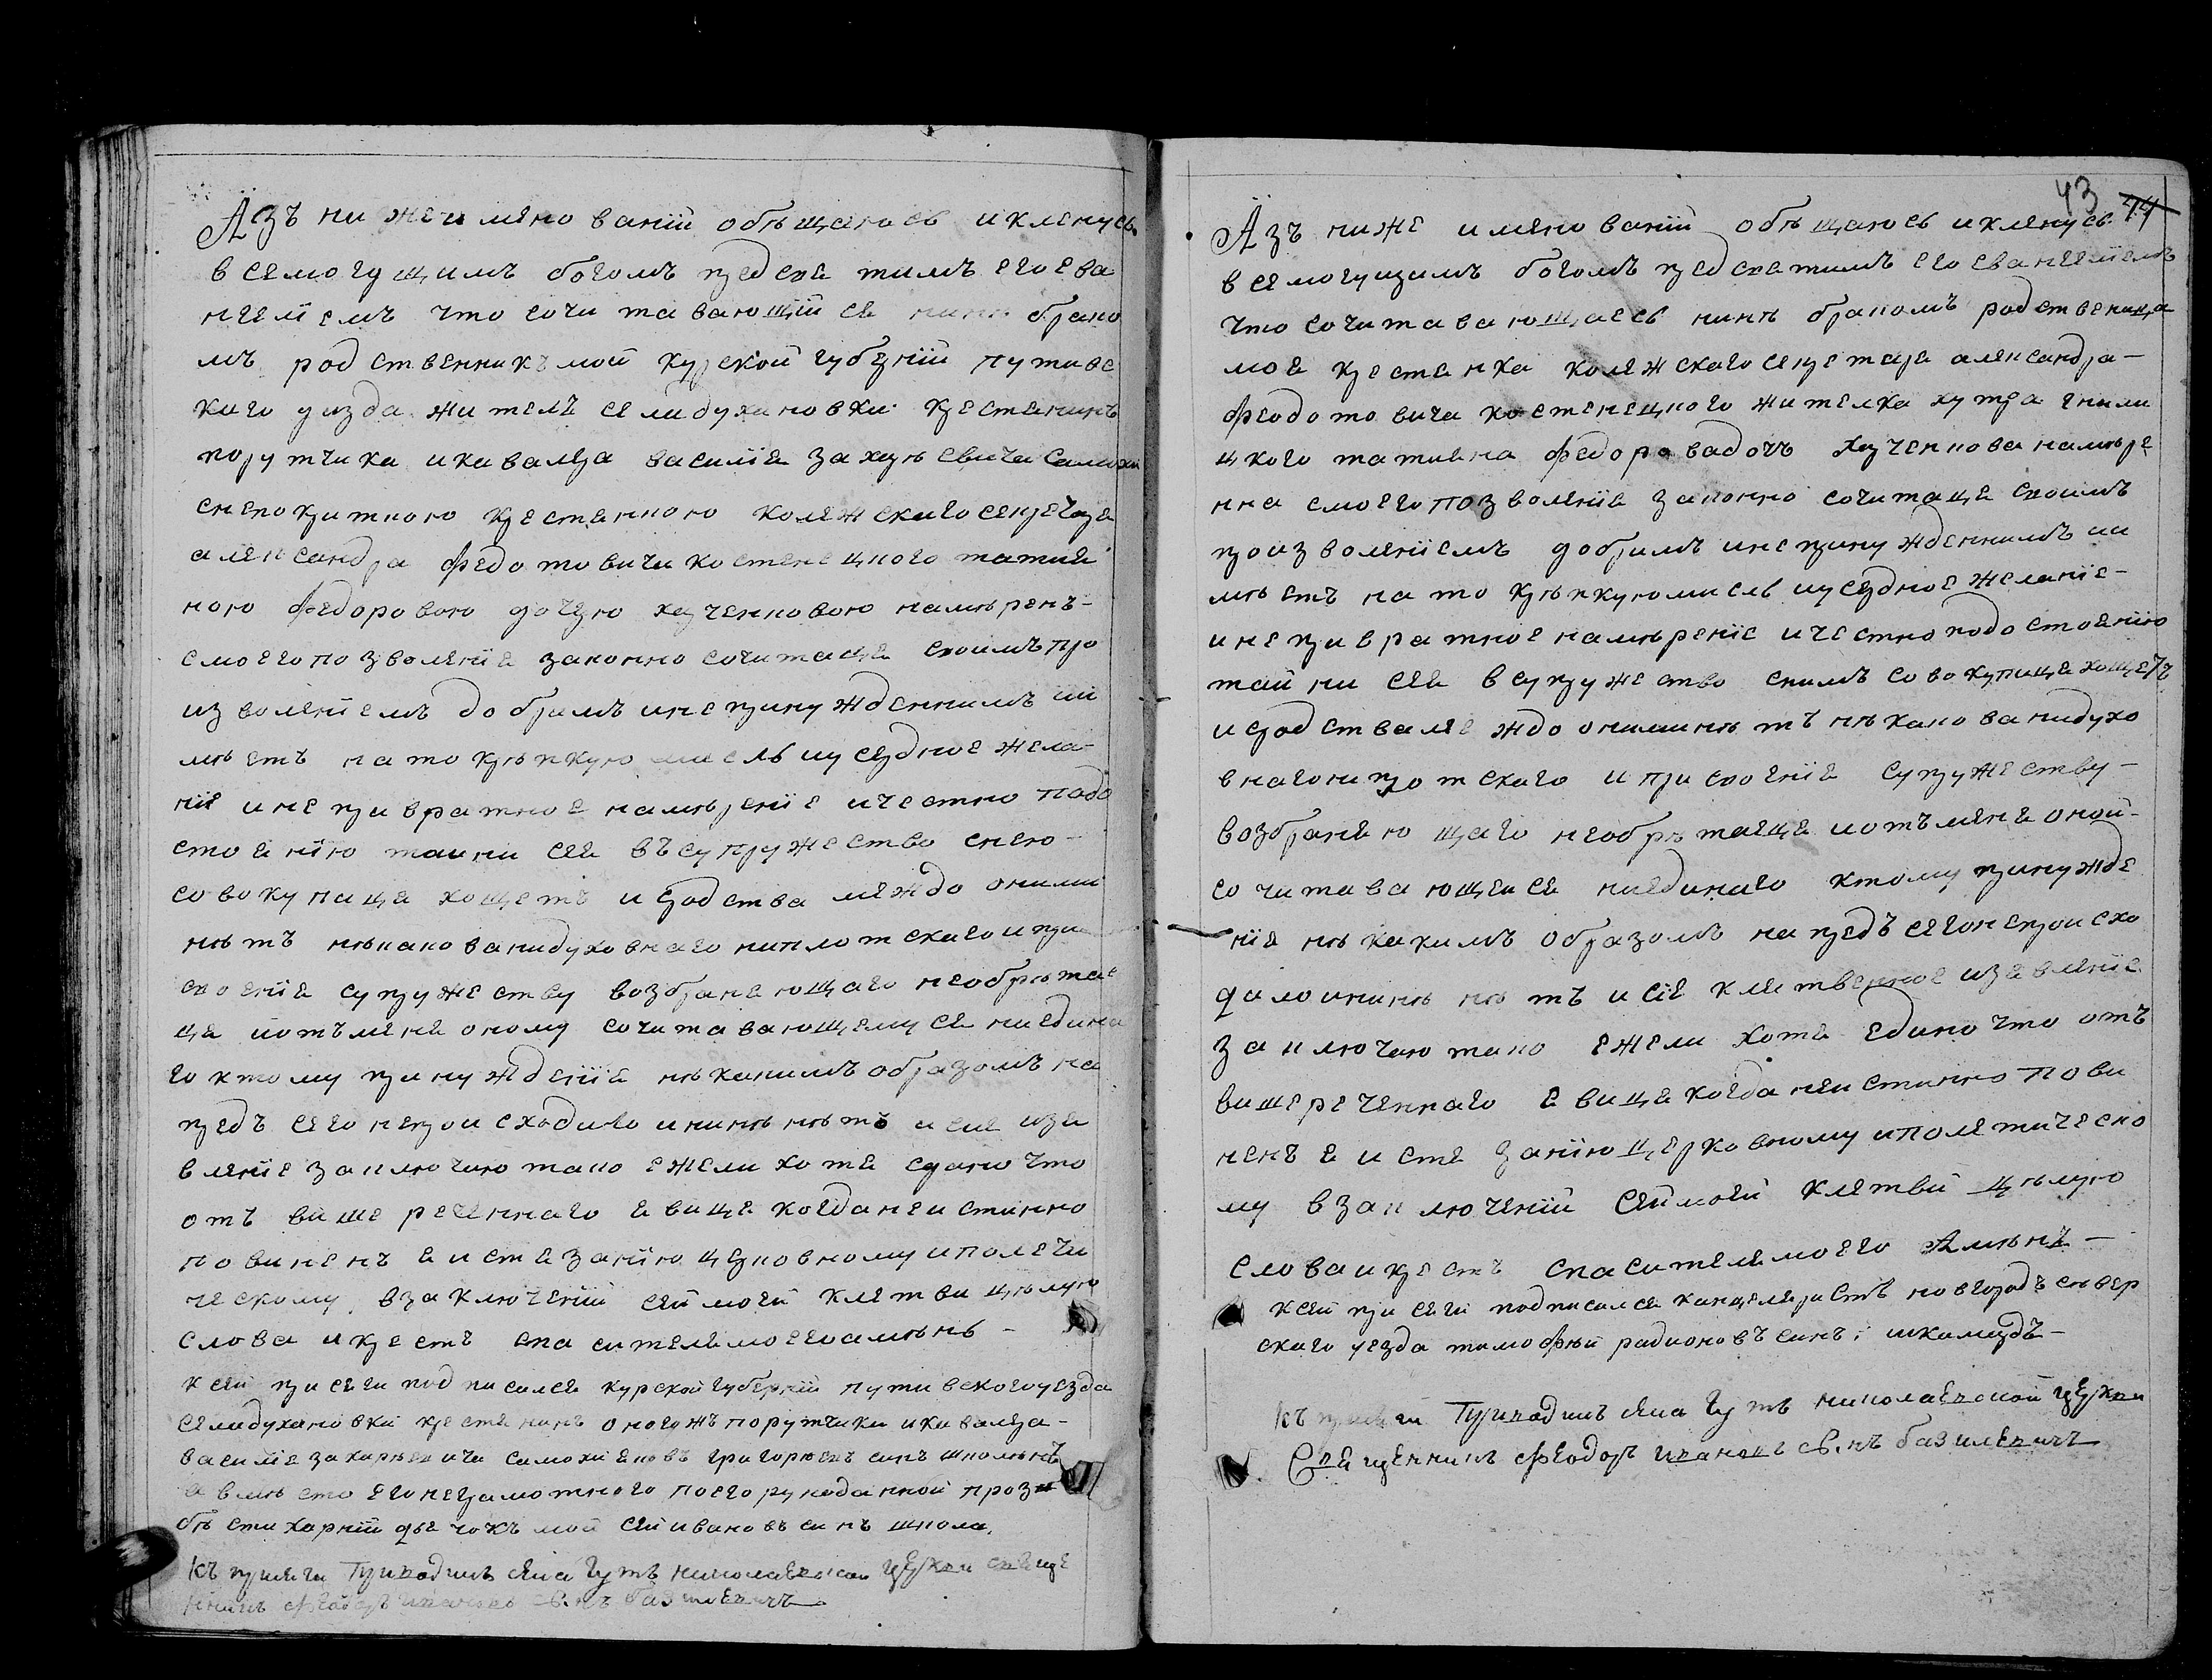 Азъ ни жеи мено ваній обѣщаюсь и кленусь
всемогу щимъ богомъ пред свя тимъ его ева
нгеліемъ что сочи таваюшій ся нинѣ брако
мъ род ственникъ мой курской губерніи путивс
кого уизда жителъ сели духановки крестянинъ
порутчика икавалера василія захаревича самохи
снепокритною крестянкою колежскиго секретаря
александра федо товичи костенецкого татия
ною федоровою дочерю харченковою намѣренъ-
смоего по зволенія законно сочитаця своимъ про
изволеніемъ добримъ инепринужденнимъ ии
мѣетъ на то крѣпкую мисль иусердное жела-
ніе ине при вратное намѣреніе ичестно подо
стоянію таини сея въсупружество снею-
совокупиця хощетъ и сродства междо оними
нѣтъ нѣкаковани духовнаго ни плотскаго и при
своенія супружеству возбраняющаго необрѣтае
ця иотъменя оному сочитавающемуся ниедина
го ктому принужденія нѣкакимъ образомъ на
предъ сего непроисходило ининѣ нѣтъ и сие изя
вленіе заключаю тако ежели хотя едино что
отъ више реченнаго явиця когда неистинно
повиненъ я истязанію церковному иполети
ческому взаключеніи сеймоей клятви цѣлую
слова икрестъ спа сителямоегоамѣнь-
к сей присяги подписался курской губерніи путивскогоуезда
селидухановки крестянинъ оногожъ порутчика икавалера-
василія захарьевича самохи яковъ григорьевъ синъ школѣнъ
а вмѣсто его неграмотного поего рукоданной прозь
бѣ стихарній дьячокъ мой сей ивановъ синъ школа.
Къ присяги Приводилъ села гутъ николаевской церкви свяще
нникъ Феодоръ ивановъ с͠нъ базилевичъ

43 44
Азъ ниже имено ваній обѣщаюсь икленусь
всемогущимъ богомъ пред святимъ его евангеліемъ
что сочитаваюшаясь нинѣ бракомъ родственица
моя крестянка колежскаго секретаря александра-
феодотовича костенецкого жителка хутра гнили
цкого татияна федоровадочъ харченкова намѣре
нна смоего позволенія законно сочитаця своимъ
произволеніемъ добримъ инепринужденнимъ ии
мѣетъ на то крѣпкуюмисль иусердное желаніе-
инепривратное намѣреніе ичестно подостоянію
тайни сея всупружество снимъ совокупиця хощетъ
исродства междо ониминѣтъ нѣкаковани духо
внагонипротскаго и присвоенія супружеству-
возбраняющаго необрѣтаеця иотъменя оной-
сочитавающейся ниединаго ктому принужде
нія нѣкакимъ образомъ на предъ сегонепроисхо
дилоининѣ нѣтъ и сіе клятвенное изявленіе
заключаю тако ежели хотя едино что отъ
вишереченнаго явиця когда неистинно пови
ненъ я истязанію церковному иполетическо
му взаключеніи сеймоей клятви цѣлую
словаикрестъ спасителямоего Амѣнъ-
ксей присяги подписался канцеляристъ новгородъ сѣвер
скаго уезда тимофѣй радионовъ синъ шкамардъ-
Къ присяги Приводилъ села гутъ николаевской церкви
Священникъ Феодоръ ивановъ с͠нъ базилевичъ